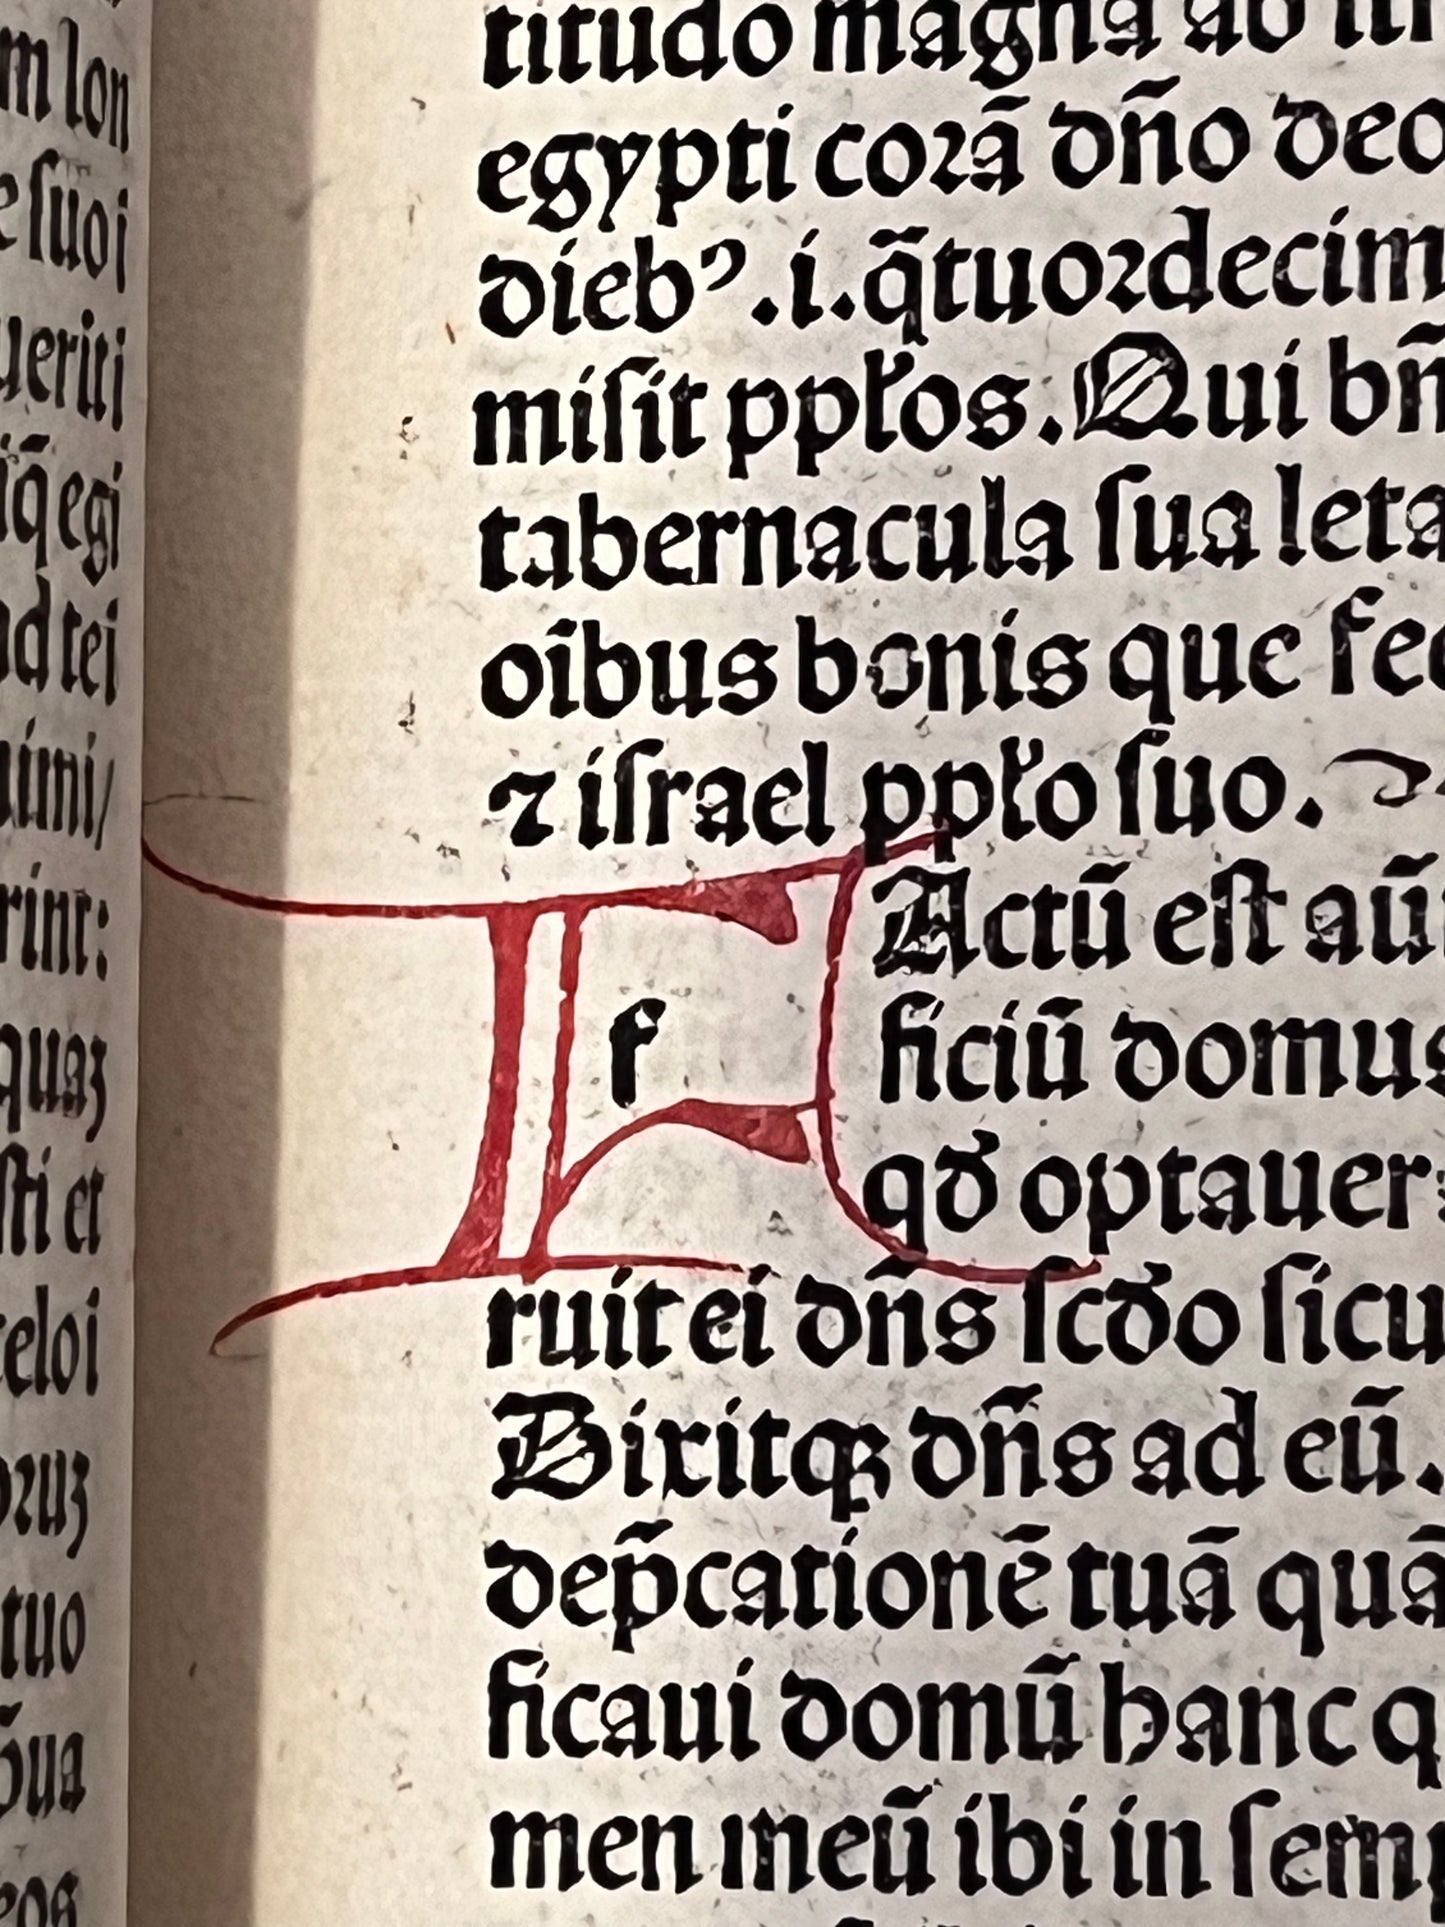 m lon
e ſuoi
ueriti
iq̄ egi
ad tei
uimi/
rint:
quaꝫ
ſti et
celoi
oꝛuꝫ
tuo
ƀua
eos
titudo magna ab
egypti coꝛā dn̄o deo
diebꝰ .i. q̄tuoꝛdecim
miſit pplos. Qui bn̄
tabernacula ſua leta
oībus bonis que fec
⁊ iſrael pplo ſuo.
f
Actū eſt aū
ficiū domus
qđ optauer
ruit ei dn̄s ſcđo ſicu
Dixitqꝫ dn̄s ad eū.
dep̄cationē tuā quā
ficaui domū hanc q
men meū ibi in ſemp